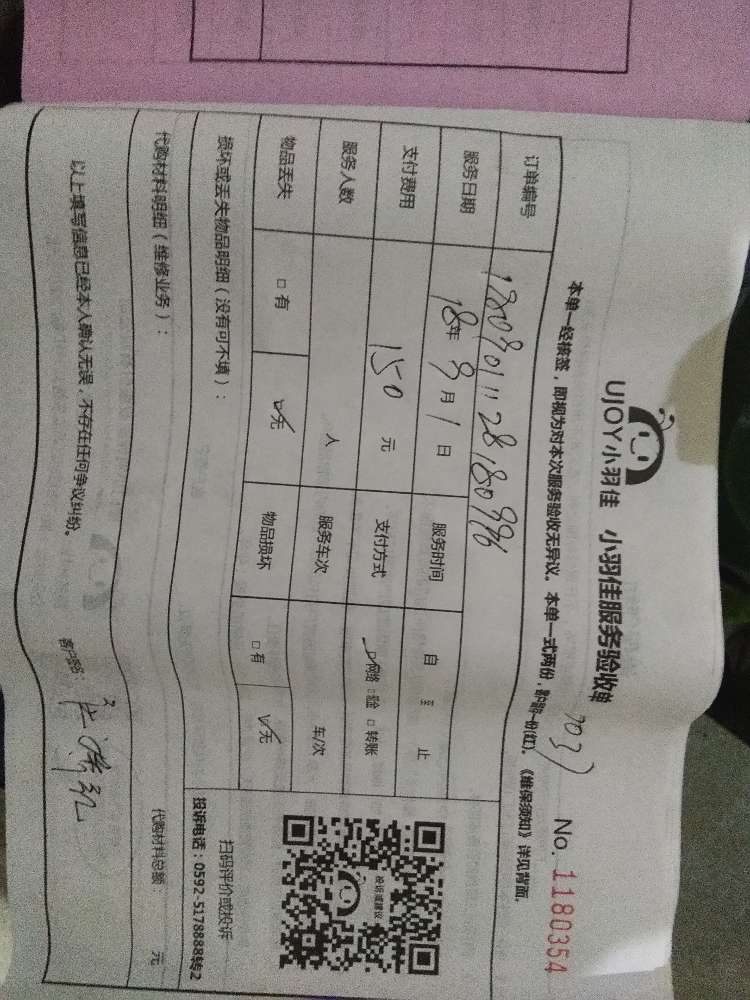 UJOY小羽佳 小羽佳服务验收单
No. 1180354
本单一经核签，即视为对本次服务验收无异议。本单一式两份，客户留存一份(红)。《维保须知》详见背面。
订单编号
服务日期 18年 9月 1日 服务时间 自 至 止
支付费用 150 元 支付方式 □网络 □现金 □转账
服务人数 人 服务车次 车/次
物品丢失 □有 □无 物品损坏 □有 □无
损坏或丢失物品明细（没有可不填）：
扫码评价或投诉
投诉电话：0592-5178888转2
投诉或建议
代购材料明细（维修业务）：
代购材料总额： 元
以上填写信息已经本人确认无误，不存在任何争议纠纷。
客户签名：